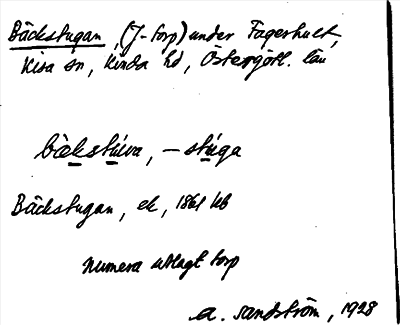 Bäckstugan, (J-torp) under Fagerhult,
Kisa sn, Kinda hd, Östergötl. län
bäkstúva, – stúga
Bäckstugan, ek, 1861 kb
Numera utlagt torp
A. Sandström, 1928